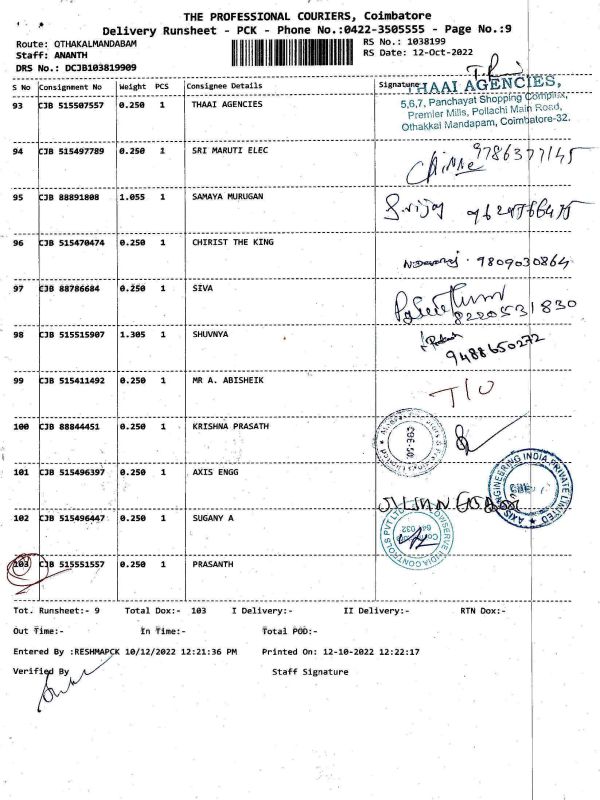 THE PROFESSIONAL COURIERS, Coimbatore
Delivery Runsheet - PCK - Phone No.:0422-3505555 - Page No.:9
Route: OTHAKALMANDABAM
RS No.: 1038199
Staff: ANANTH
RS Date: 12-Oct-2022
DRS No.: DCJB103819909
S No Consignment No Weight PCS Consignee Details Signature
93 CJB 515507557 0.250 1 THAAI AGENCIES
THAAI AGENCIES,
5,6,7, Panchayat Shopping Complex,
Premier Mills, Pollachi Main Road,
Othakkal Mandapam, Coimbatore-32.
94 CJB 515497789 0.250 1 SRI MARUTI ELEC
95 CJB 88891808 1.055 1 SAMAYA MURUGAN
96 CJB 515470474 0.250 1 CHIRIST THE KING 9809030864
97 CJB 88786684 0.250 1 SIVA 8220531830
98 CJB 515515907 1.305 1 SHUVNYA 9488650272
99 CJB 515411492 0.250 1 MR A. ABISHEIK T/O
100 CJB 88844451 0.250 1 KRISHNA PRASATH
101 CJB 515496397 0.250 1 AXIS ENGG
AXIS ENGINEERING INDIA PRIVATE LIMITED
102 CJB 515496447 0.250 1 SUGANY A
103 CJB 515551557 0.250 1 PRASANTH
Tot. Runsheet:- 9 Total Dox:- 103 I Delivery:- II Delivery:- RTN Dox:-
Out Time:- In Time:- Total POD:-
Entered By :RESHMAPCK 10/12/2022 12:21:36 PM Printed On: 12-10-2022 12:22:17
Verified By Staff Signature